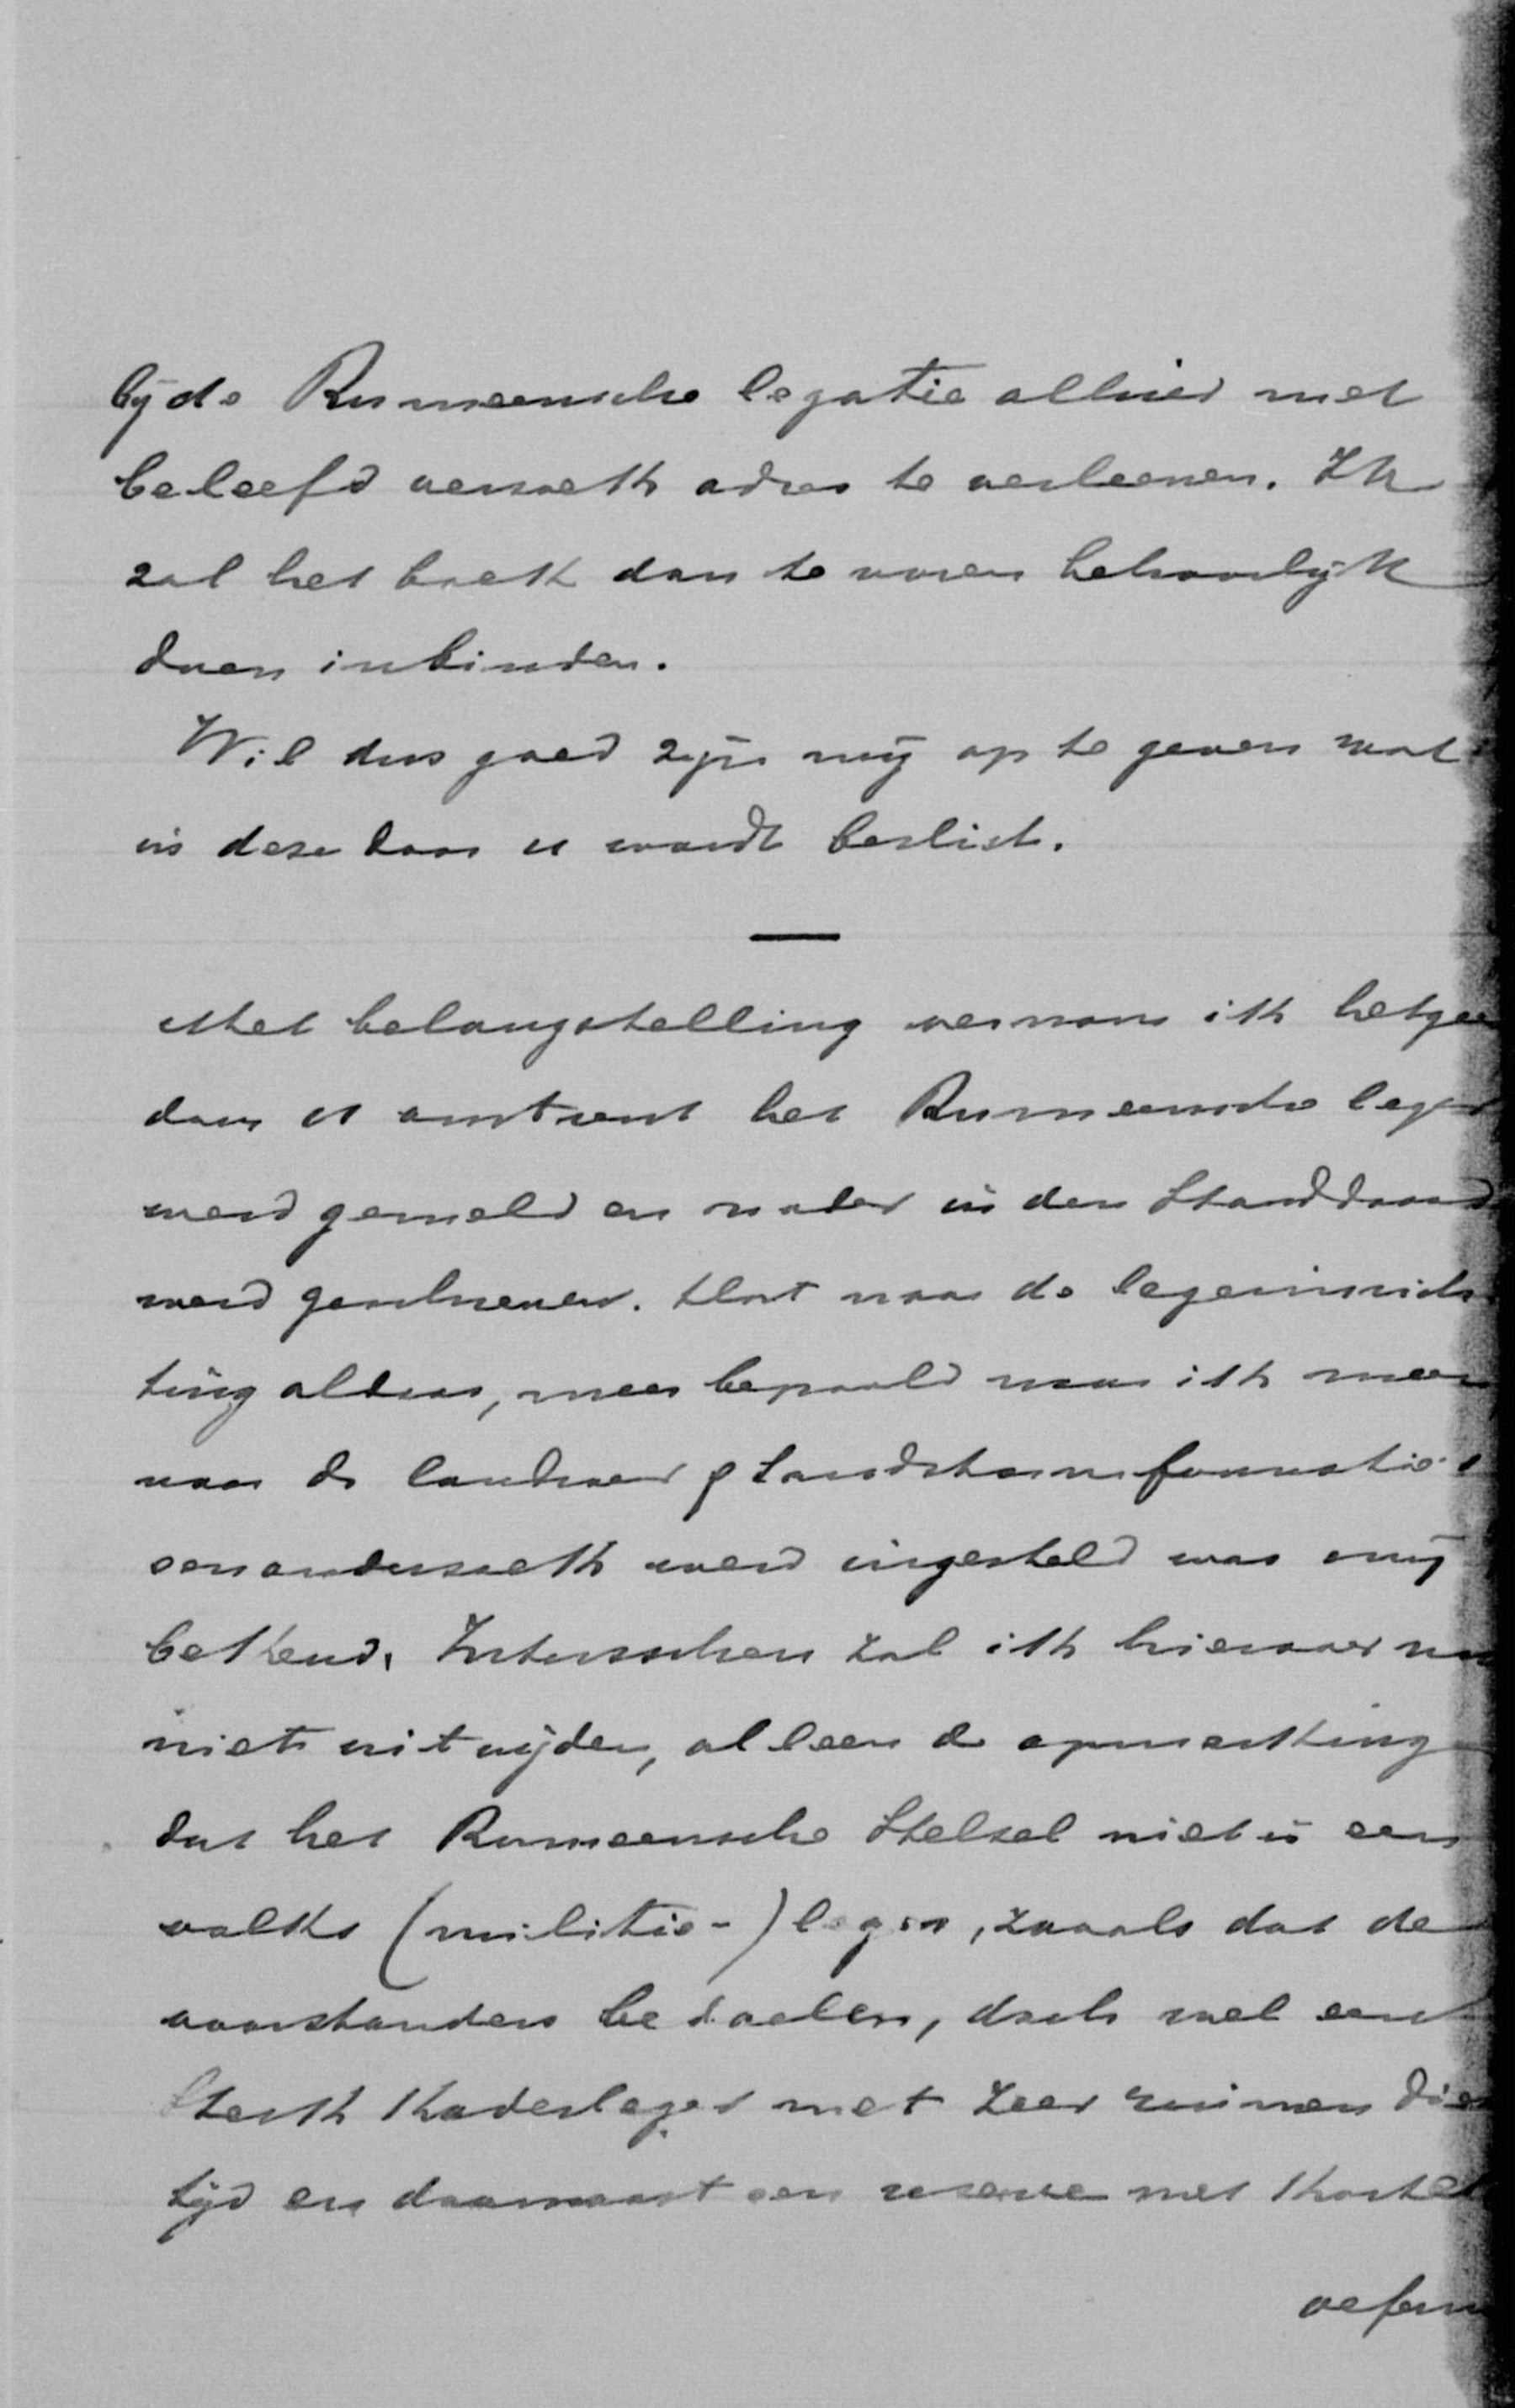 bij de Rumeensche legatie alhier met
beleefd verzoek adres te verleenen. Ik
zal het boek dan te voren behoorlijk
doen inbinden.
Wil dus goed zijn mij op te geven wat
in deze door u wordt beslist.
Met belangstelling vernam ik hetgee
door u omtrent het Rumeensche leger
werd gemeld en nader in den Standdaard
werd geschreven. Dat naar de legerinrich
ting aldaar, meer bepaald naar ik meen
naar de landweer & landstormformatie's
een onderzoek werd ingesteld was mij
bekend. Intusschen zal ik hierover nu
niet uitwijden, alleen de opmerking
dat het Rumeensche Stelsel niet is een
volks (militie-) leger, zooals dat de
voorstanders bedoelen, doch wel een
Sterk Kaderleger met zeer ruimen die
tijd en daarnaast een reserve met Korte
oefen